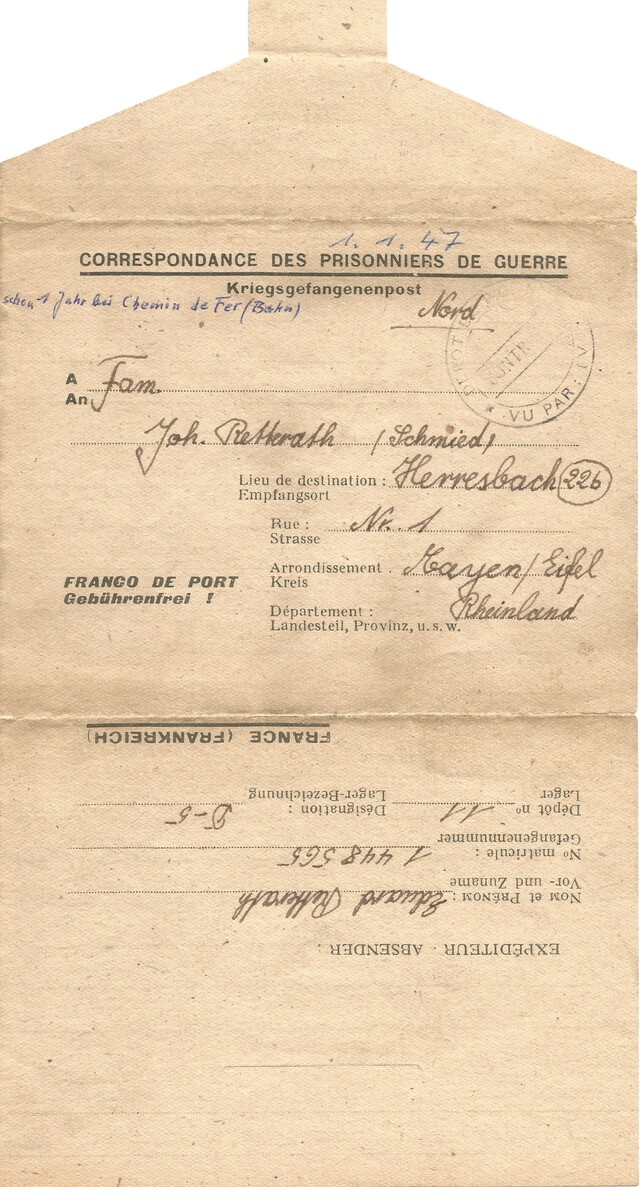 1. 1. 47
CORRESPONDANCE DES PRISONNIERS DE GUERRE
Kriegsgefangenenpost
schon 1 Jahr bei Chemin de Fer (Bahn)
Nord
DEPOT
CONTR
VU PAR:
A Fam.
An
Joh. Retterath (Schmied)
Lieu de destination : Herresbach (22b)
Empfangsort
Rue : Nr. 1
Strasse
Arrondissement . Mayen/Eifel
Kreis
FRANCO DE PORT
Gebührenfrei !
Département : Rheinland
Landesteil, Provinz, u. s. w.
EXPÉDITEUR - ABSENDER :
NOM et PRÉNOM : Eduard Retterath
Vor- und Zuname
No matricule : 1 448 565
Gefangenennummer
Dépôt no 11 Désignation : D-5
Lager Lager-Bezeichnung
FRANCE (FRANKREICH)